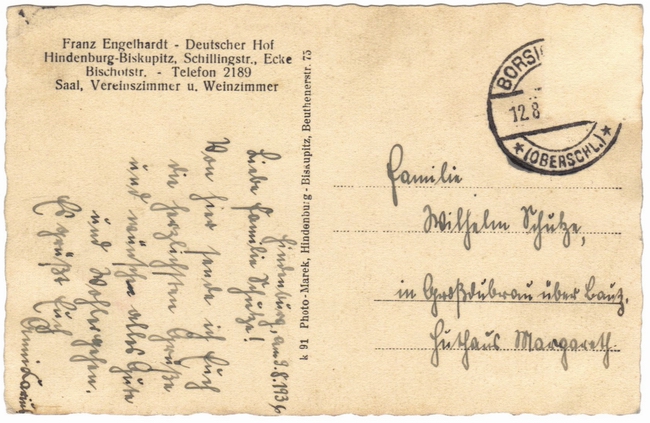 Franz Engelhardt - Deutscher Hof
Hindenburg-Biskupitz, Schillingstr., Ecke
Bischofstr. - Telefon 2189
Saal, Vereinszimmer u. Weinzimmer
Hindenburg, am 9.8.1936
Liebe Familie Schütze!
Von hier sende ich Euch
die herzlichsten Grüße
und wünsche alles Gute
und Wohlergehen.
Es grüßt Euch
k 91 Photo-Marek, Hindenburg - Biskupitz, Beuthenerstr. 75
BORSI
12.8
* (OBERSCHL.) *
Familie
Wilhelm Schütze,
in Großdubrau über Bautz.
Huthaus Margareth.